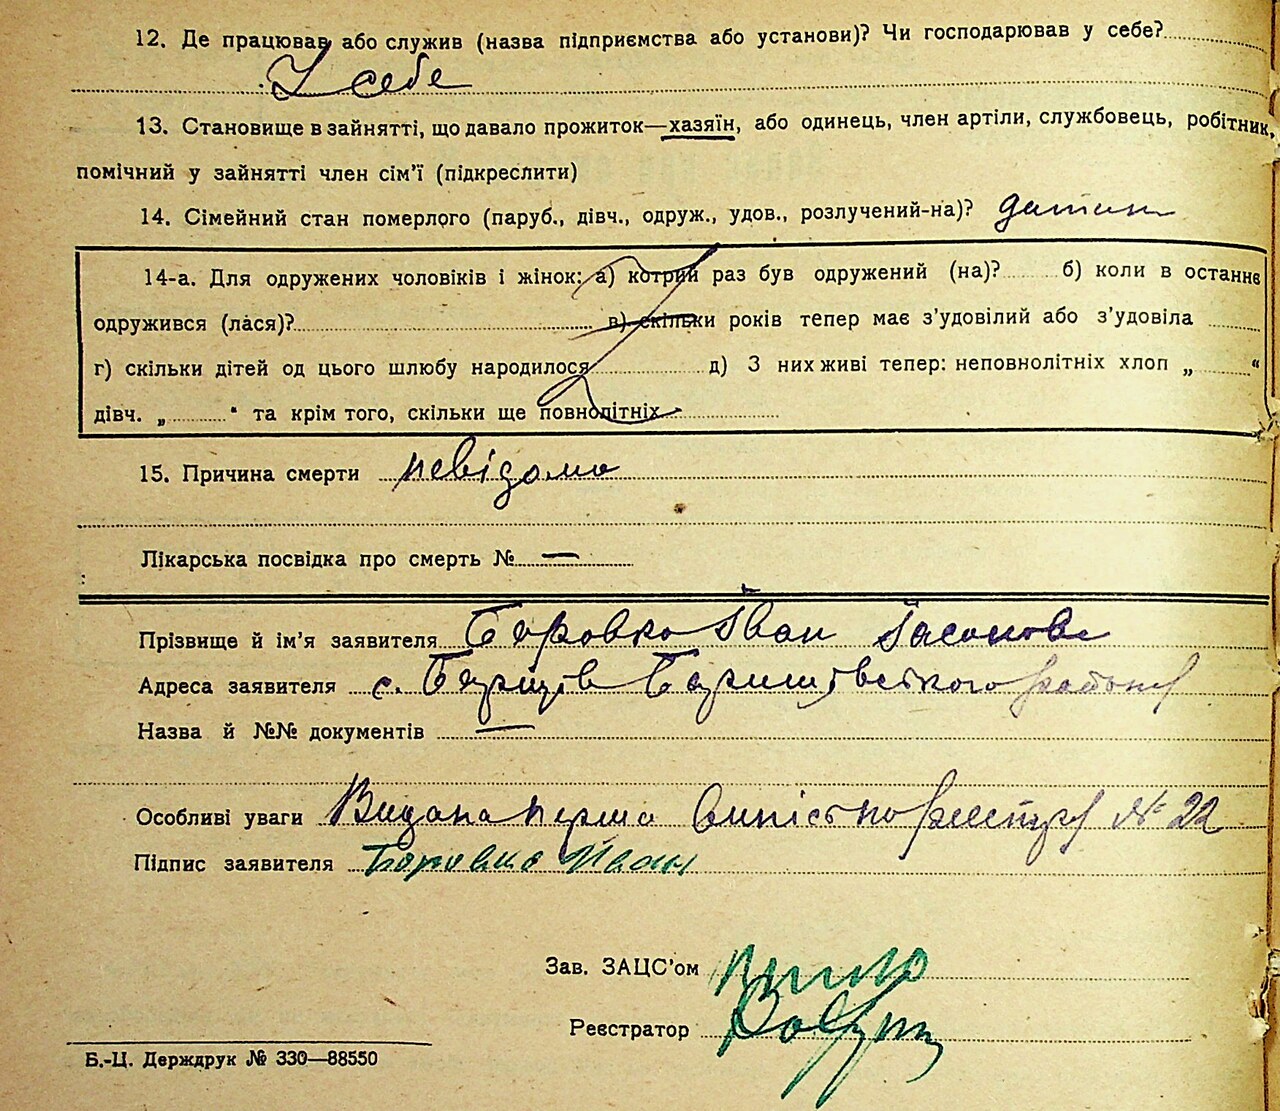 12. Де працював або служив (назва підприємства або установи)? Чи господарював у себе?
У себе
13. Становище в зайнятті, що давало прожиток—хазяїн, або одинець, член артілі, службовець, робітник,
помічний у зайнятті член сім'ї (підкреслити)
14. Сімейний стан померлого (паруб., дівч., одруж., удов., розлучений-на)? дитина
14-а. Для одружених чоловіків і жінок: а) котрий раз був одружений (на)? б) коли в останнє
одружився (лася)? в) скільки років тепер має з'удовілий або з'удовіла
г) скільки дітей од цього шлюбу народилося д) З них живі тепер: неповнолітніх хлоп „ “
дівч. „ “ та крім того, скільки ще повнолітніх
15. Причина смерти невідома
Лікарська посвідка про смерть № —
Прізвище й ім'я заявителя Боровко Іван
Адреса заявителя с. Баришівського району
Назва й №№ документів —
Особливі уваги Видана перша по реєстру № 22
Підпис заявителя Іван
Зав. ЗАЦС'ом
Реєстратор
Б.-Ц. Держдрук № 330—88550